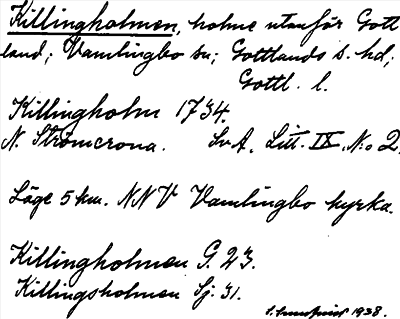 Killingholmen, holme utanför Gott
land; Vamlingbo sn; Gottlands s. hd;
Gottl. l.
Killingholm 1734.
N. Strömcrona. Sv. A. Litt. IX. No 2.
Läge 5 km. NNV Vamlingbo kyrka.
Killingholmen G. 23.
Killingsholmen Sj: 31.
1938.